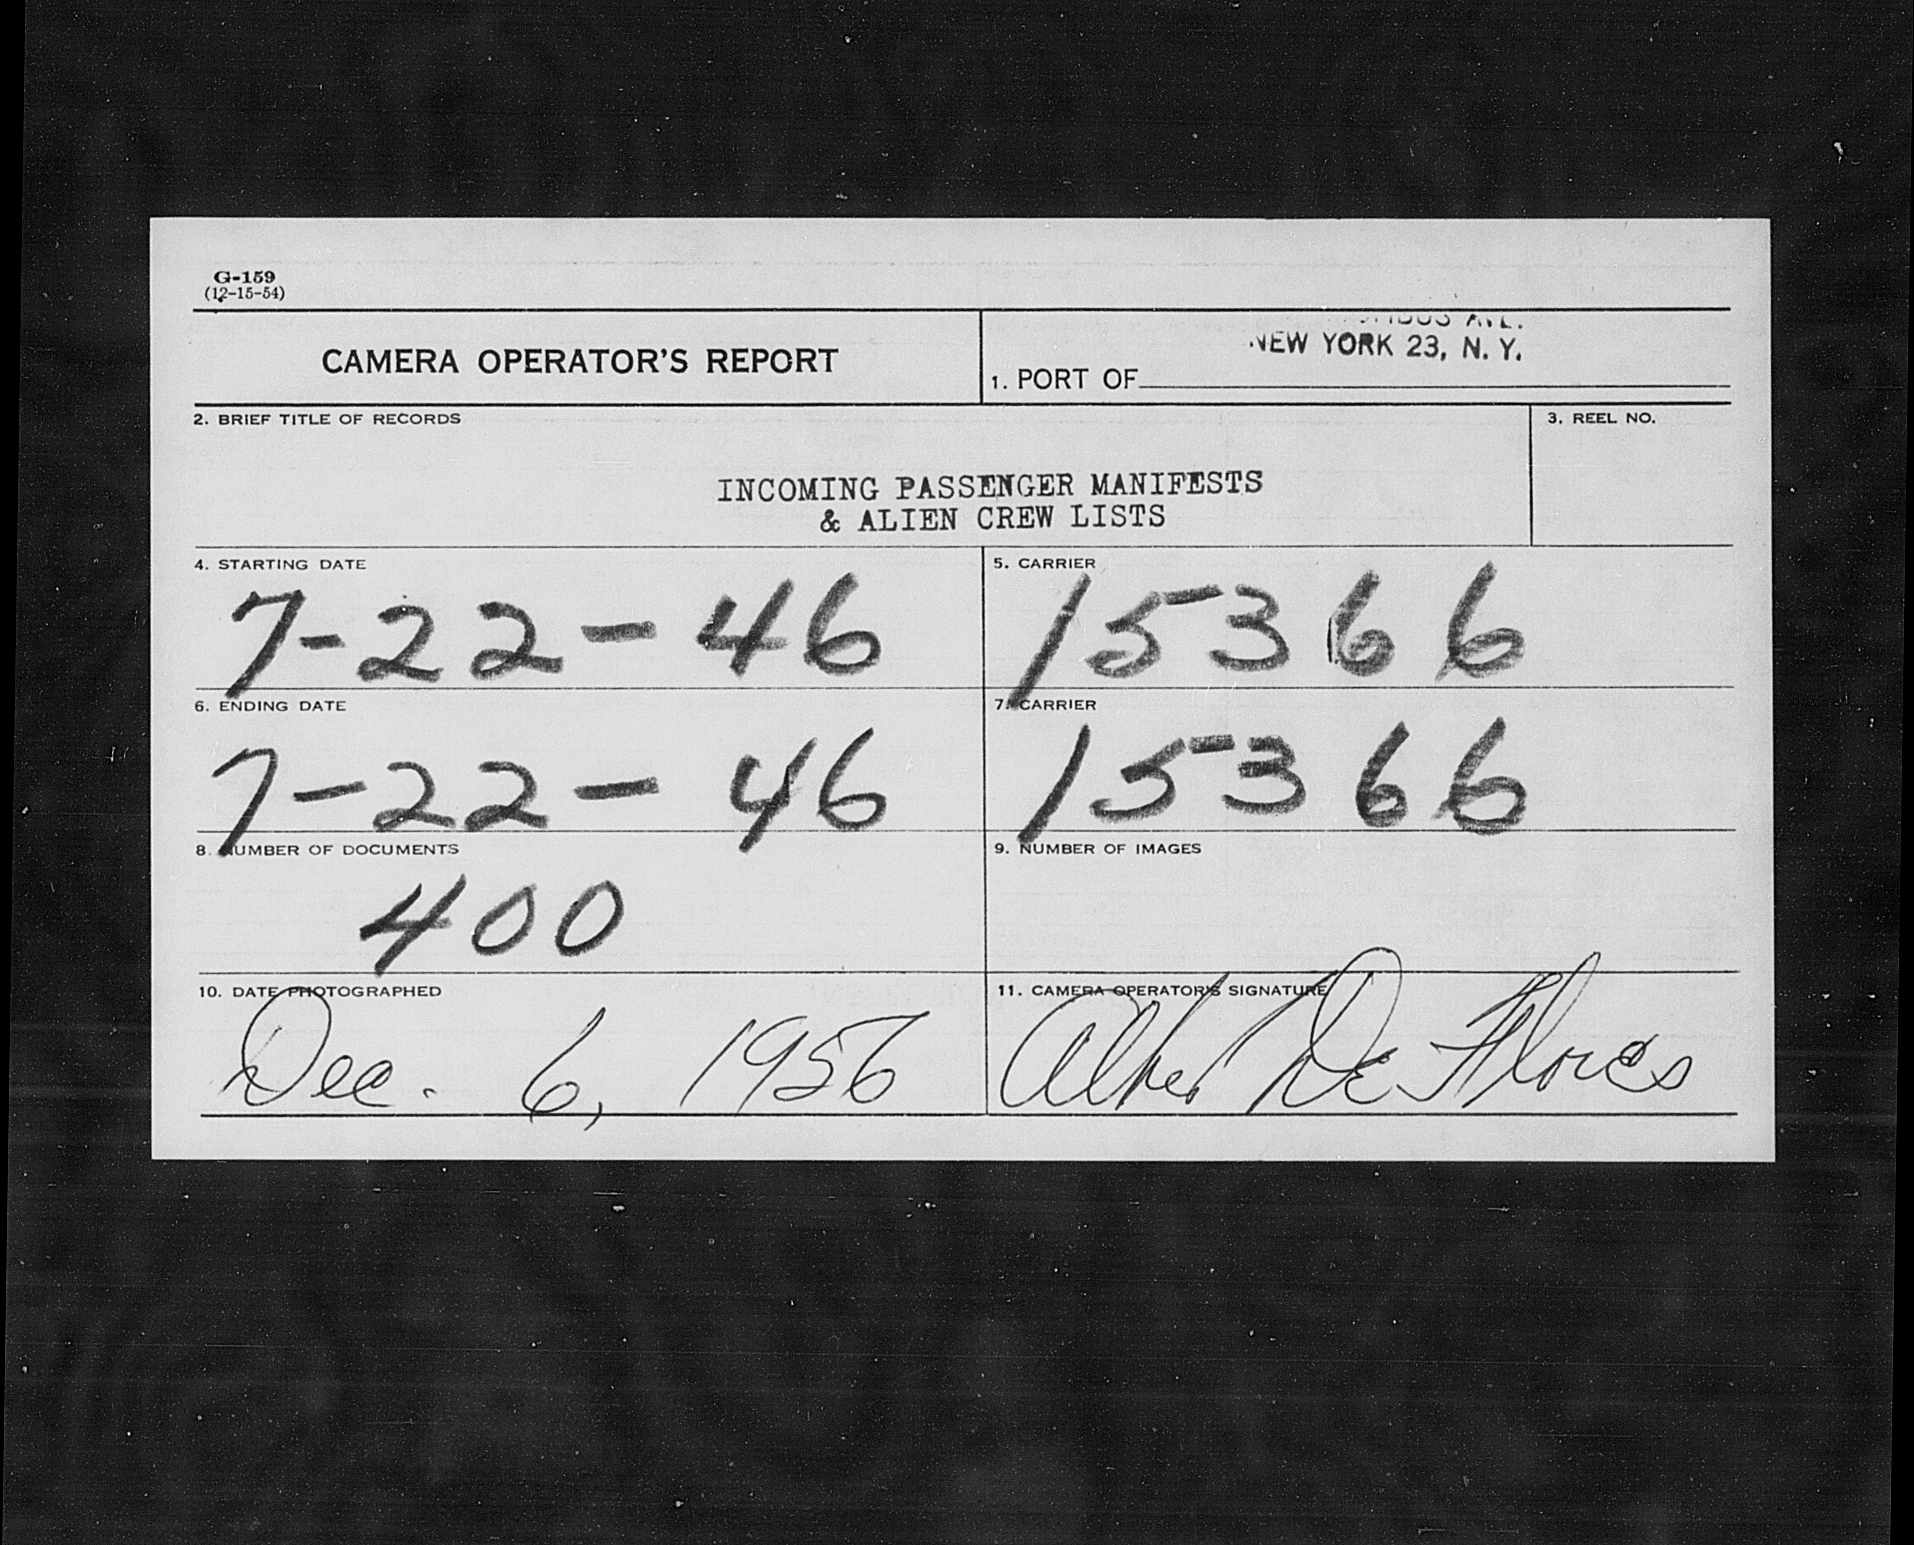 G-159
(12-15-54)
CAMERA OPERATOR'S REPORT
AVE.
NEW YORK 23, N. Y.
1. PORT OF
2. BRIEF TITLE OF RECORDS
3. REEL NO.
INCOMING PASSENGER MANIFESTS
& ALIEN CREW LISTS
4. STARTING DATE
5. CARRIER
7-22-46
15366
6. ENDING DATE
7. CARRIER
7-22-46
15366
8. NUMBER OF DOCUMENTS
9. NUMBER OF IMAGES
400
10. DATE PHOTOGRAPHED
11. CAMERA OPERATOR'S SIGNATURE
Dec. 6, 1956
De Flores